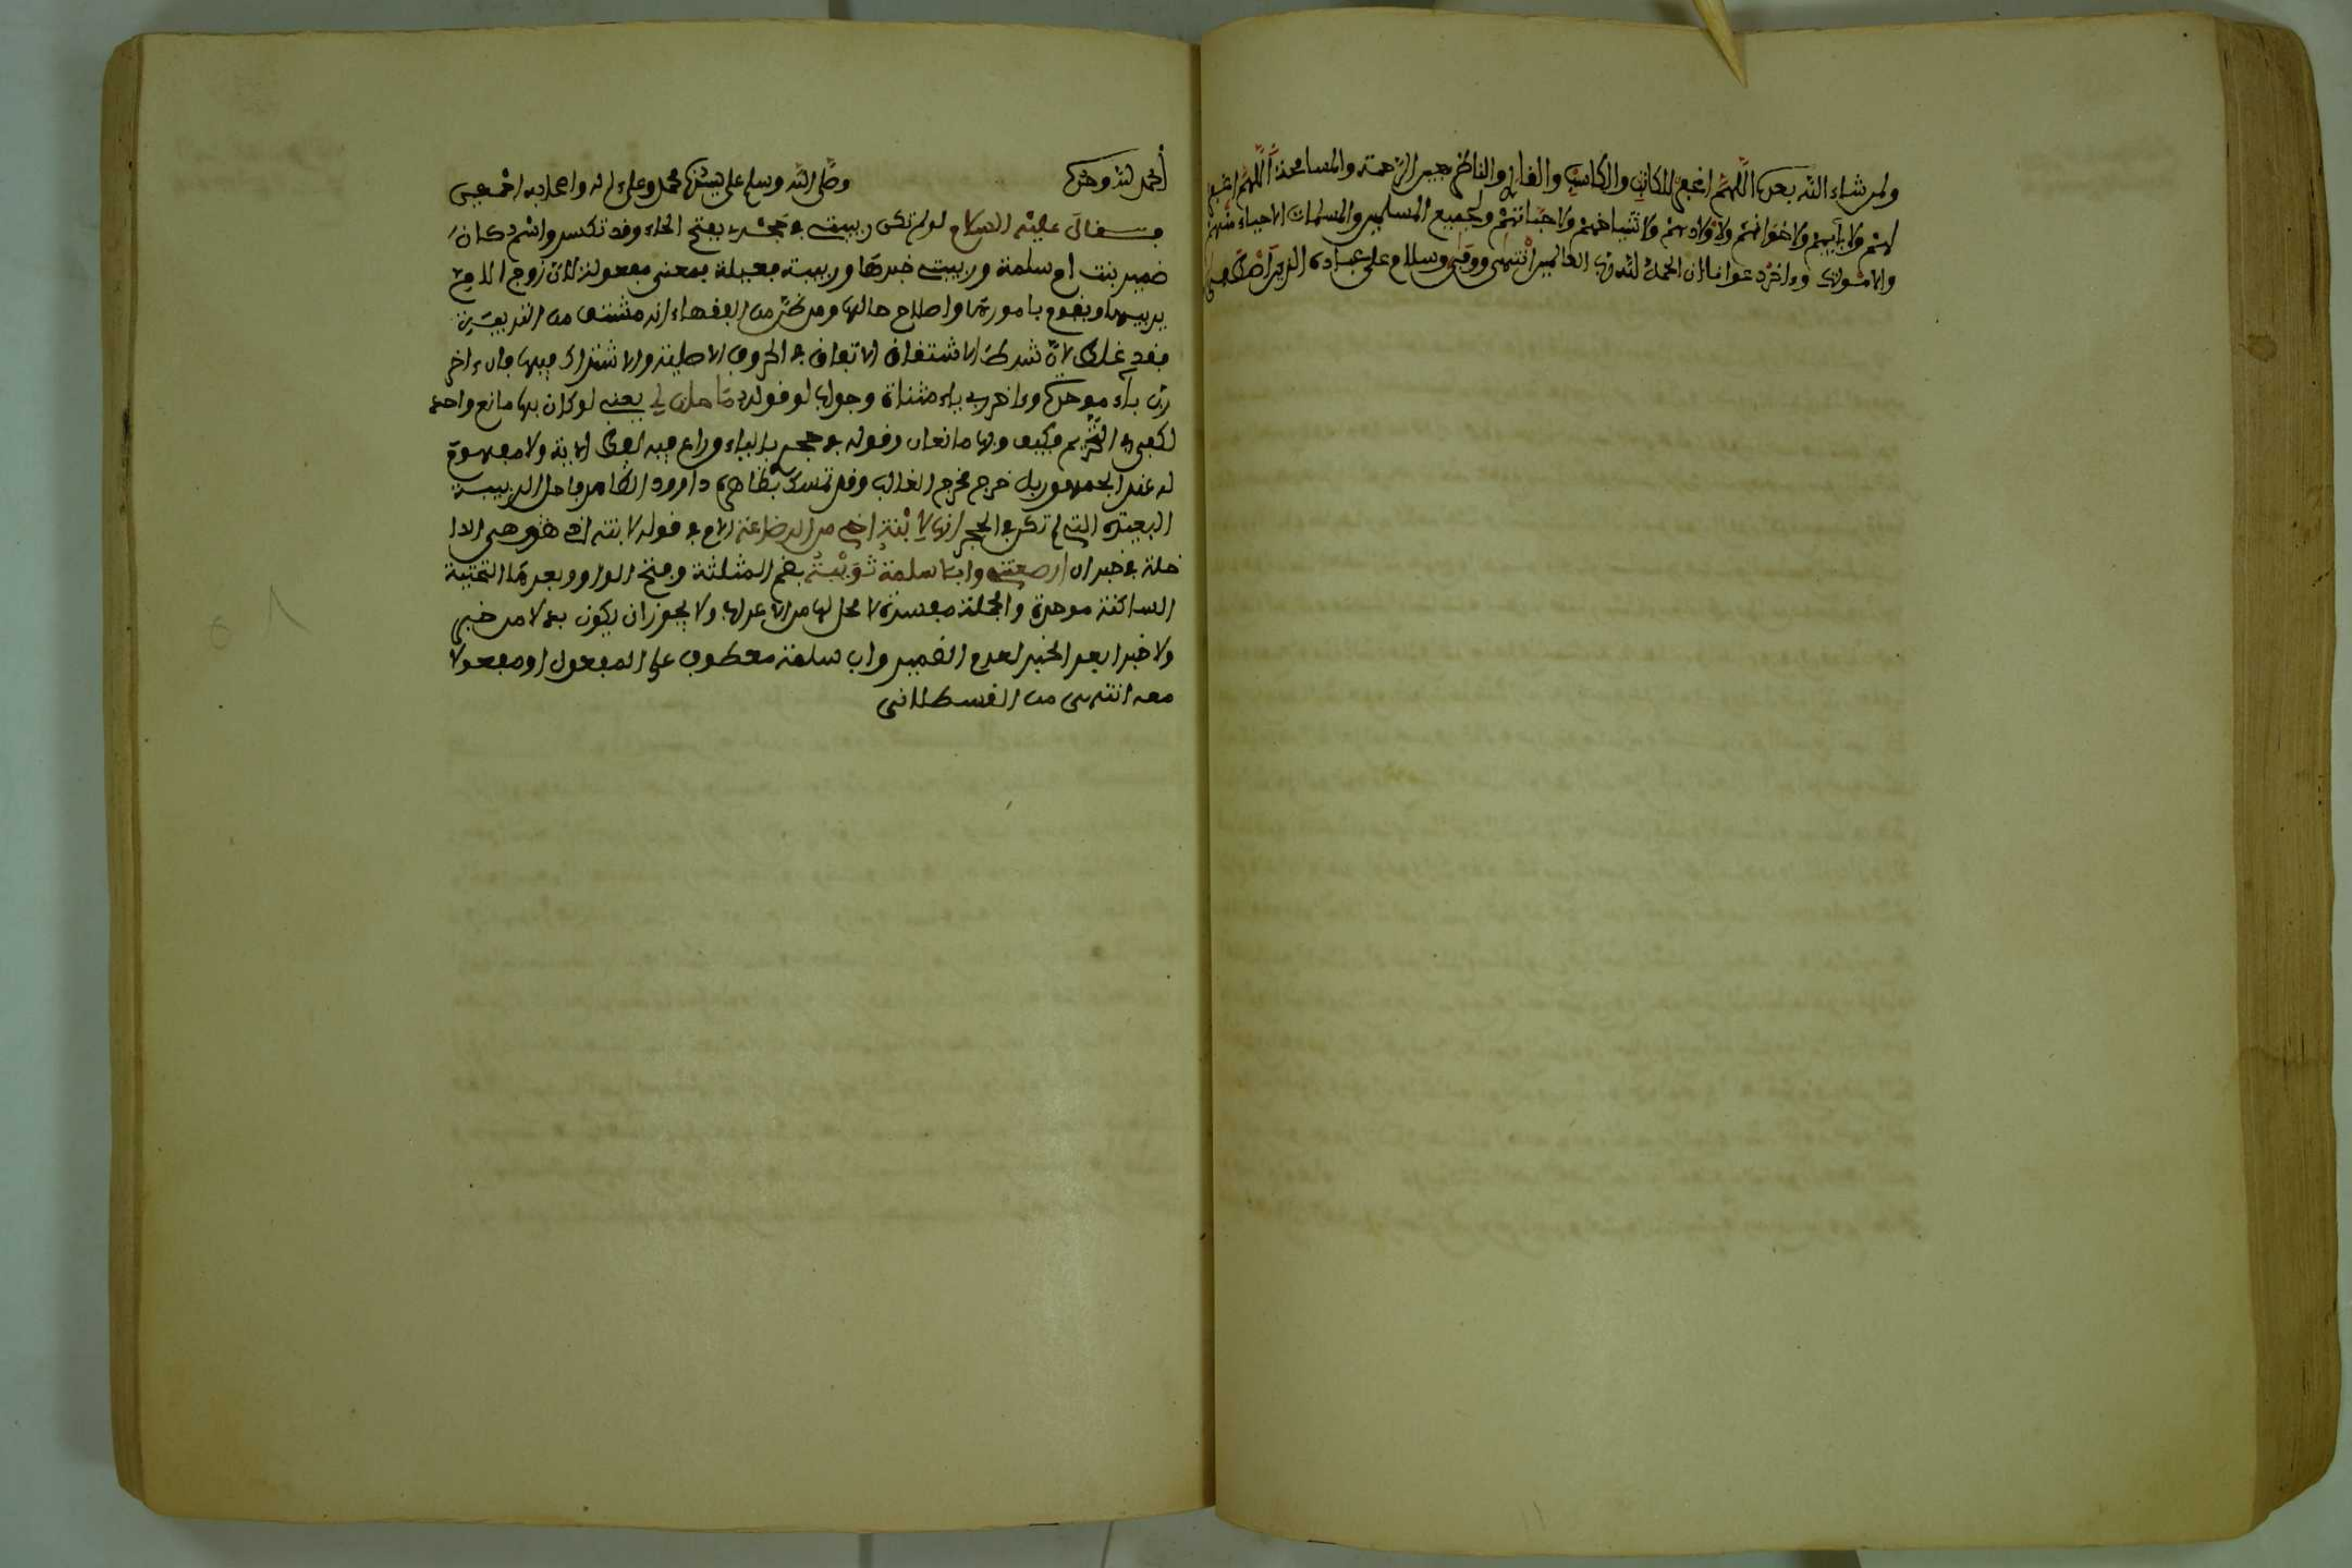 ولمن شاء الله بعده اللهم اغفر للكاتب والكاسب والقارئ والناظر بعين الرحمة والمسامحة اللهم اغفر
لهم ولآبائهم ولإخوانهم ولأولادهم ولأشياخهم ولأحبائهم ولجميع المسلمين والمسلمات الأحياء منهم
والأموات وءاخر دعوانا أن الحمد لله رب العالمين انتهى ووفى وسلام على عباده الذين اصطفى
الحمد لله وحده وصلى الله وسلم على سيدنا محمد وعلى ءاله وأصحابه أجمعين
فقال عليه السلام لو لم تكن ربيبتي في حجري بفتح الحاء وقد تكسر واسم كان
ضمير بنت أم سلمة وربيبتي خبرها وربيبة فعيلة بمعنى مفعولة لأن زوج الأم
يربيها ويقوم بأمورها وإصلاح حالها ومن ظن من الفقهاء أنه مشتق من التربية
فقد غلط لأن شرط الاشتقاق الاتفاق في الحروف الأصلية والاشتراك فيها فإن ءاخر
رب باء موحدة وءاخر ربي ياء مثناة وجواب لو قوله ما حلت لي يعني لو كان بها مانع واحد
لكفى في التحريم فكيف وبها مانعان وقوله في حجري راعى فيه لفظ الآية ولا مفهوم
له عند الجمهور بل خرج مخرج الغالب وقد تمسك بظاهره داوود الظاهري فأحل الربيبة
البعيدة التي لم تكن في الحجر إنها لابنة أخي من الرضاعة اللام في قوله لابنة أخي هي الدا
خلة في خبر ان أرضعتني وأبا سلمة ثويبة بضم المثلثة وفتح الواو وبعدها التحتية
الساكنة موحدة والجملة مفسرة لا محل لها من الإعراب ولا يجوز أن يكون بدلا من خبر
ولا خبرا بعد الخبر لعدم الضمير وأب سلمة معطوف على المفعول أو مفعولا
معه انتهى من القسطلاني